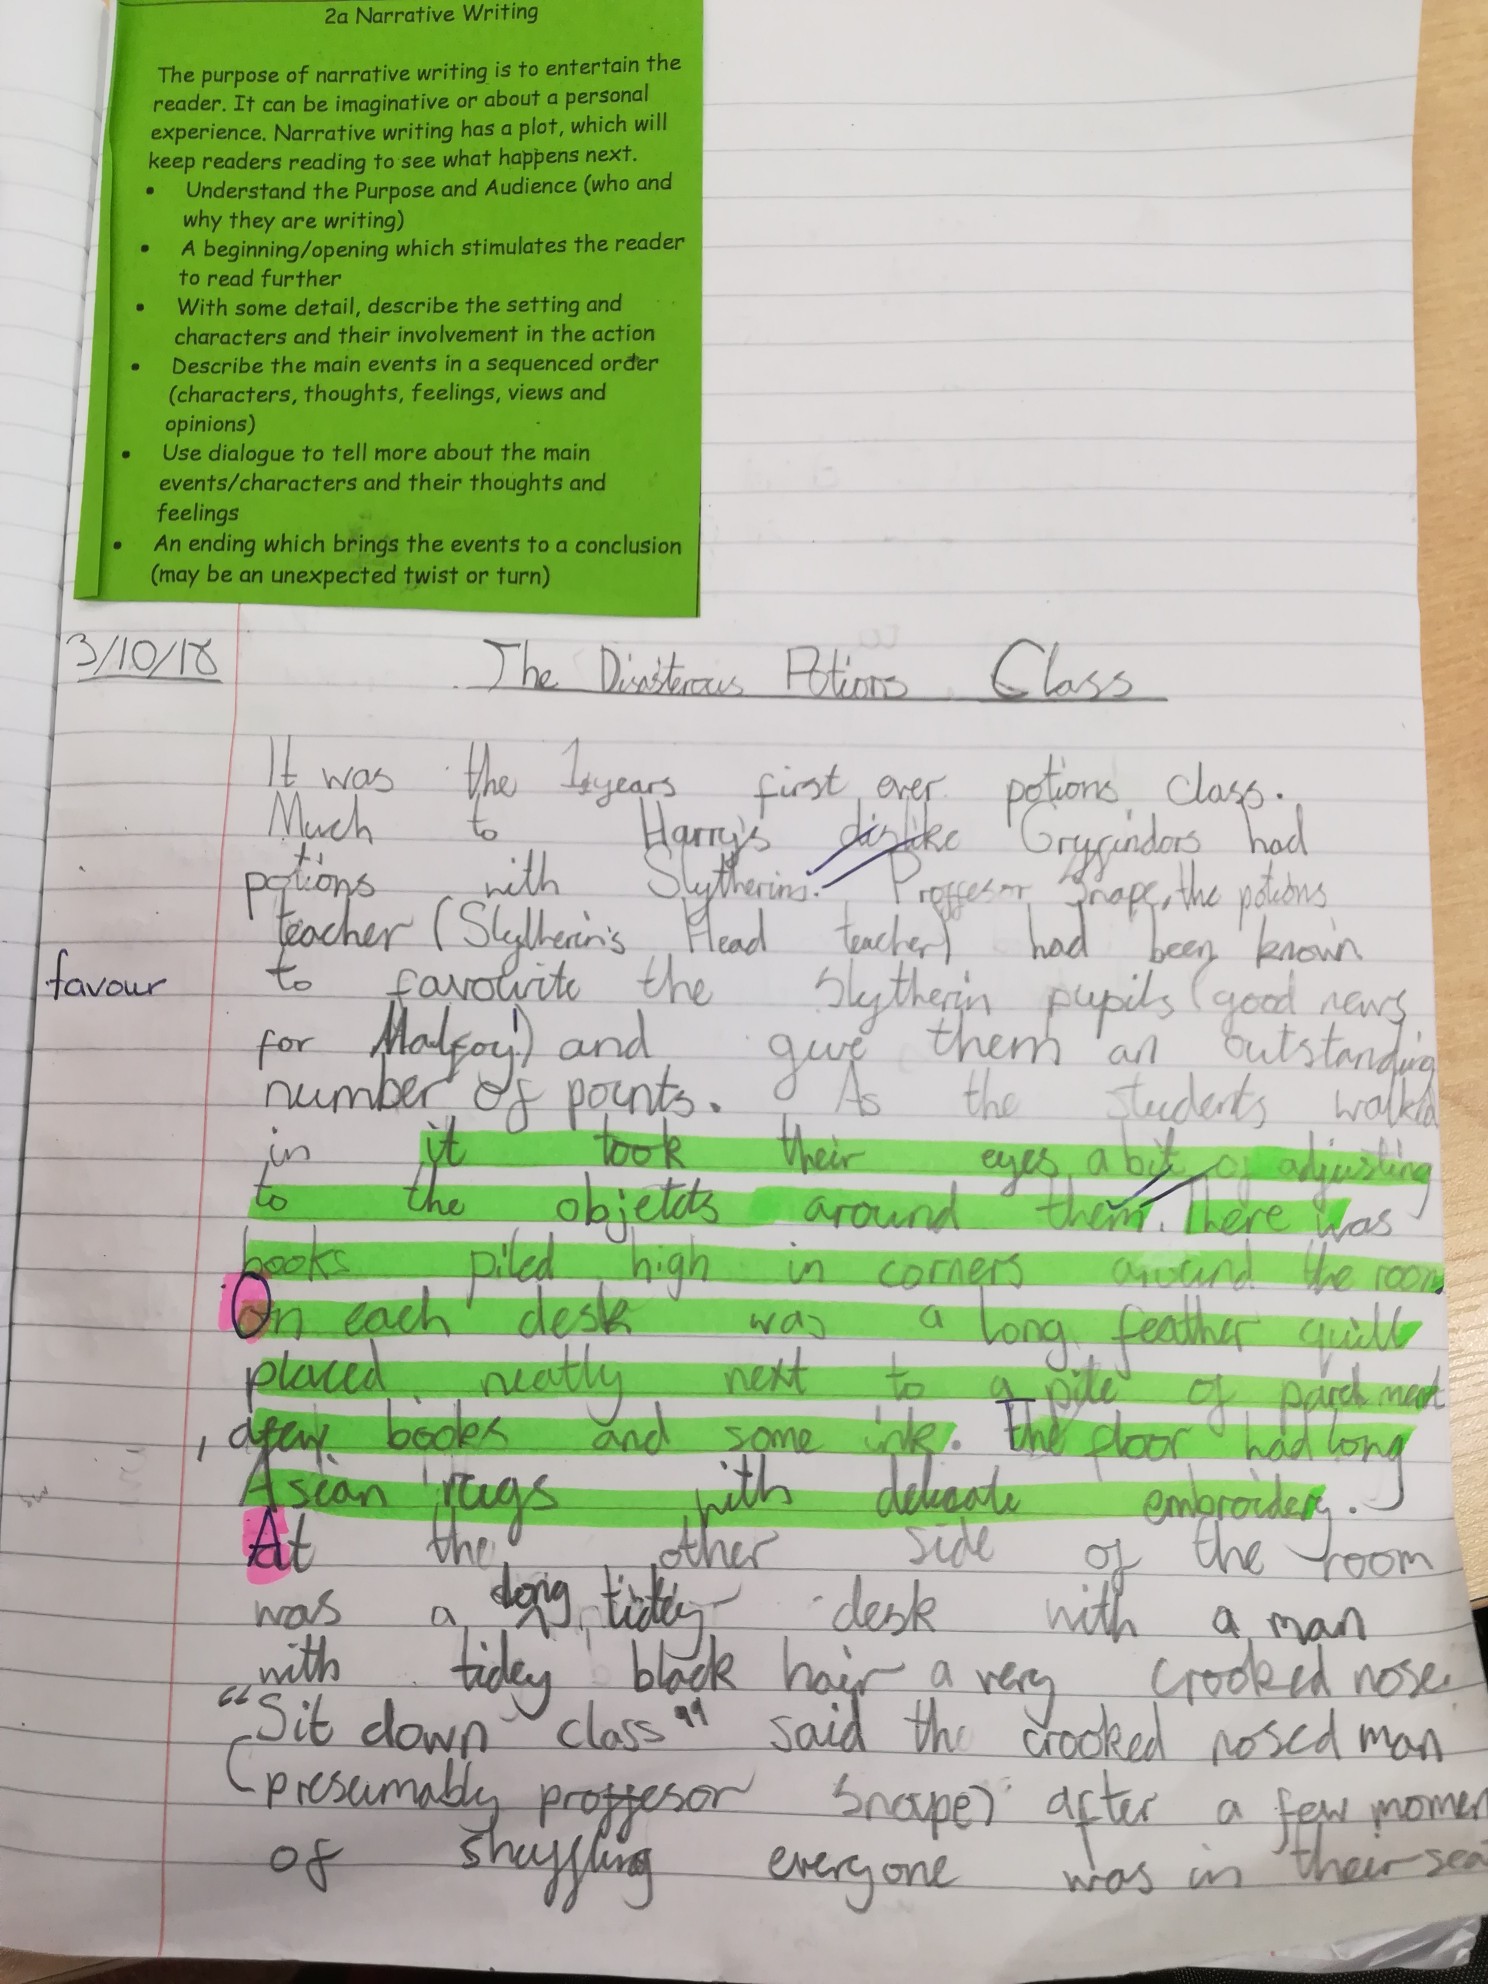 2a Narrative Writing
The purpose of narrative writing is to entertain the
reader. It can be imaginative or about a personal
experience. Narrative writing has a plot, which will
keep readers reading to see what happens next.
• Understand the Purpose and Audience (who and
why they are writing)
• A beginning/opening which stimulates the reader
to read further
• With some detail, describe the setting and
characters and their involvement in the action
• Describe the main events in a sequenced order
(characters, thoughts, feelings, views and
opinions)
• Use dialogue to tell more about the main
events/characters and their thoughts and
feelings
• An ending which brings the events to a conclusion
(may be an unexpected twist or turn)
3/10/18 The Disasterous Potions Class
It was the 1st years first ever potions class.
Much to Harry's dislike Gryffindors had
potions with Slytherins. Proffesor Snape, the potions
teacher (Slytherin's Head teacher) had been known
favour to favourite the Slytherin pupils (good news
for Malfoy!) and give them an outstanding
number of points. As the students walked
in it took their eyes a bit of adjusting
to the around them. There was
books piled high in corners around the room
On each desk was a long feather quill
placed neatly next to a pile of parchment
, a few books and some ink. The floor had long
Asian rugs with delicate embroidery.
At the other side of the room
was a long tidey desk with a man
with tidey black hair a very crooked nose.
"Sit down class" said the crooked nosed man
(presumably proffesor Snape) after a few momen
of shuffling everyone was in their sea